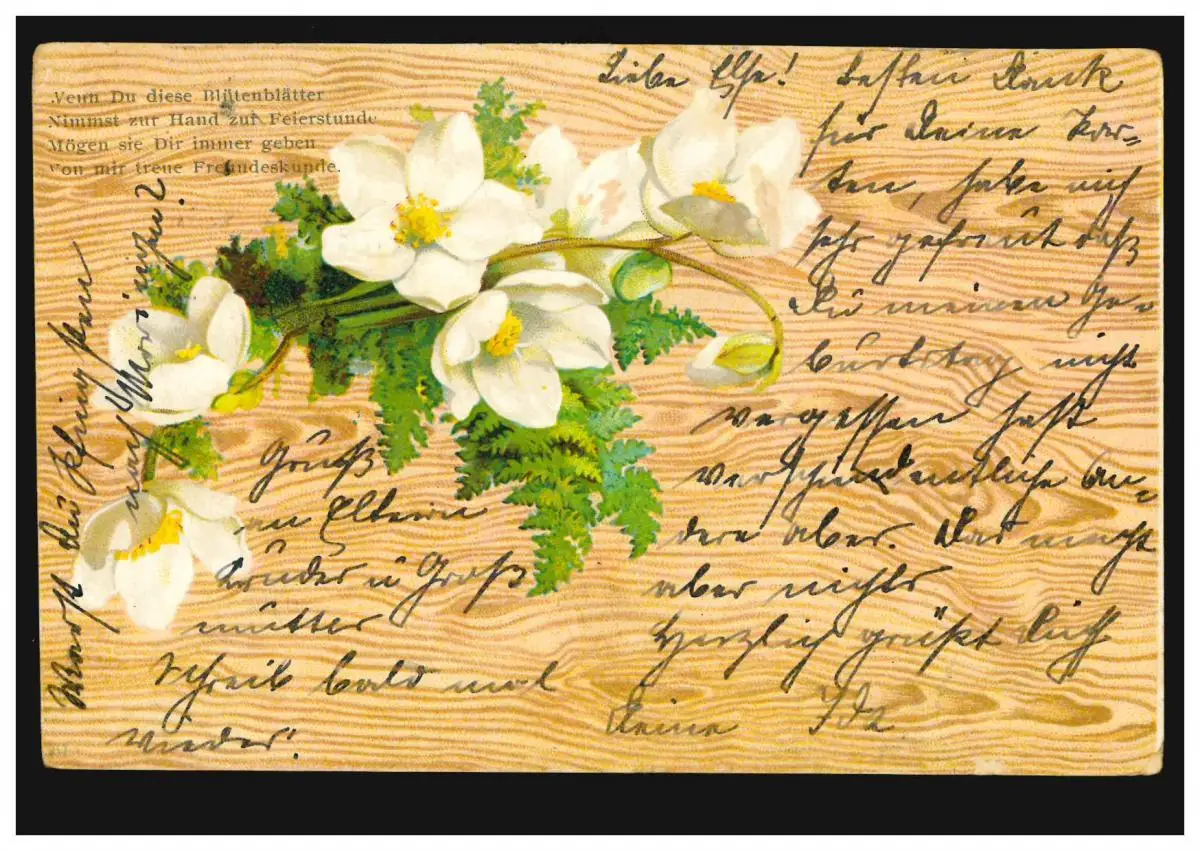 Wenn Du diese Blütenblätter
Nimmst zur Hand zur Feierstunde
Mögen sie Dir immer geben
Von mir treue Freundeskunde.
Liebe Else! besten Dank
für Deine Kar=
ten, habe mich
sehr gefreut daß
Du meinen Ge-
burtstag nicht
vergessen hast
verschiedentliche an-
dere aber. Das macht
aber nichts
Herzlich grüßt Dich
Deine Ida
Gruß
an Eltern
Bruder u Groß
mutter
Schreib bald mal
wieder!
Warst du Pfingsten
nach